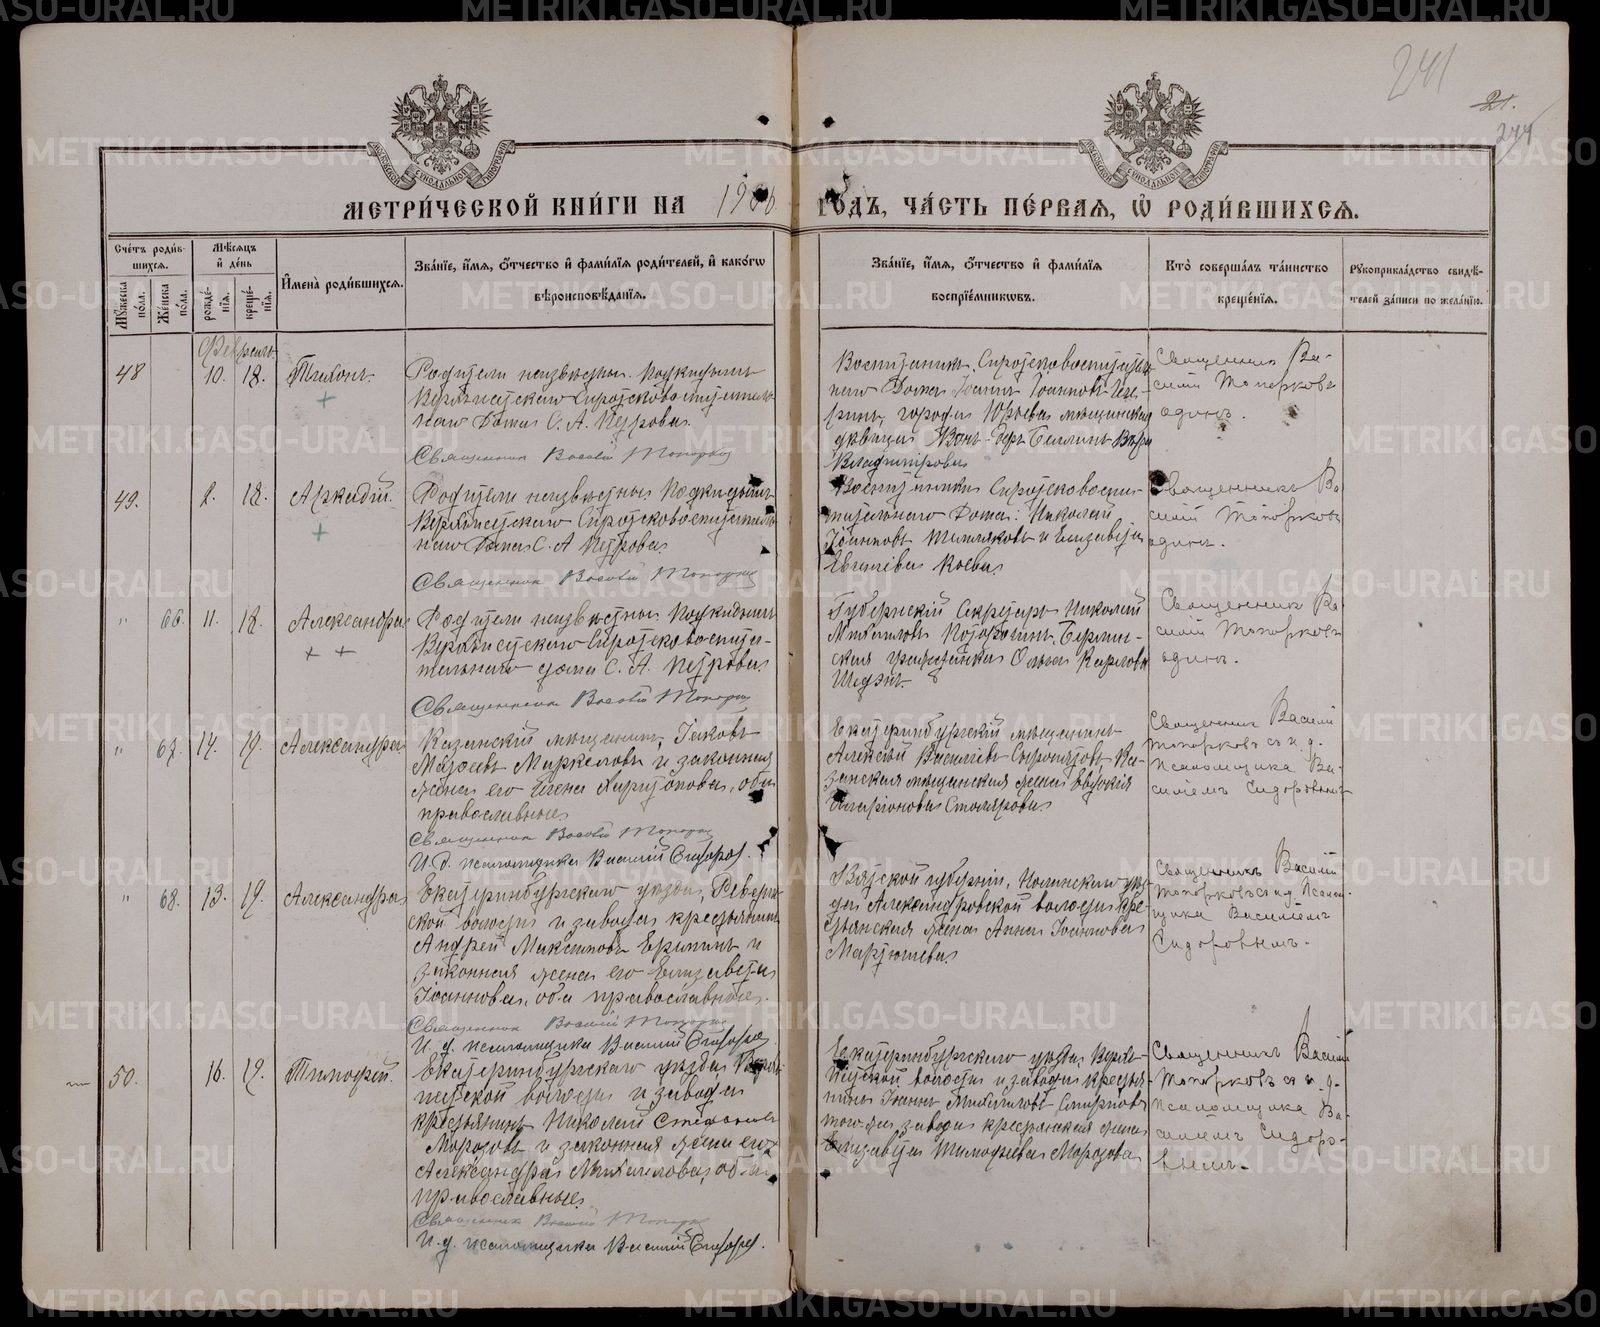 241
21.
244
МЕТРИ́ЧЕСКОЙ КНИ́ГИ НА 1906 ГОДЪ, ЧА́СТЬ ПЕ́РВАЯ, Ѡ РОДИ́ВШИХСЯ.
Сче́тъ роди́вшихся.
Му́жеска по́ла.
Же́нска по́ла.
Мѣ́сяцъ и де́нь
рожде́нїя.
креще́нїя.
И҆мена̀ роди́вшихся.
Зва́нїе, и҆́мя, ѻ҆́тчество и҆ фами́лїя роди́телей, и҆ како́гѡ
вѣроисповѣ́данїя.
Зва́нїе, и҆́мя, ѻ҆́тчество и҆ фами́лїя
воспрїе́мниковъ.
Кто̀ соверша́лъ та́инство
креще́нїя.
Рꙋкоприкла́дство свидѣ́-
телей за́писи по жела́нїю.
Февраль
48
10. 18. Тихонъ.
Родители неизвѣстны. Подкидышъ
Верхъисетскаго Сиротсковоспитатель
наго Дома С. А. Петрова.
Священник Василій Топорков
Воспитанникъ Сиротсковоспитатель
наго Дома Іоаннъ Іоанновъ
города Юрьева мѣщанская
дѣвица Фонъ-деръ-Беллинъ Вѣра
Владимірова
Священникъ Ва-
силій Топорковъ
одинъ.
49.
18. Аркадій.
Родители неизвѣстны. Подкидышъ
Верхъисетскаго Сиротсковоспитатель
наго Дома С. А. Петрова.
Священник Василій Топорков
Воспитанники Сиротсковоспи-
тательнаго Дома: Николай
Іоанновъ и Елизавета
Евгеніева
Священникъ Ва
силій Топорковъ
одинъ.
" 66. 11. 18. Александра
Родители неизвѣстны. Подкидышъ
Верхъисетскаго Сиротсковоспита-
тельнаго дома С. А. Петрова.
Священник Василій Топорков
Губернскій Секретарь Николай
Михаиловъ
ская гражданка Ольга Карлова
Священникъ Ва-
силій Топорковъ
одинъ.
" 67. 14. 19. Александра
Казанскій мѣщанинъ, Іаковъ
Маркеловъ и законная
жена его Елена Харитонова, оба
православные
Священник Василій Топорков
И. д. псаломщика Василій Сидоров.
Екатеринбургскій мѣщанинъ
Алексѣй Василіевъ Сыромятовъ, Ка-
занская мѣщанская жена Евдокія
Иларіонова Столярова
Священникъ Василій
Топорковъ съ и. д.
псаломщика Ва-
силіемъ Сидоровымъ
" 68. 13. 19. Александра
Екатеринбургскаго уѣзда, Ревдин-
ской волости и завода крестьянинъ
Андрей Максимовъ и
законная жена его Елизавета
Іоаннова, оба православные.
Священник Василій Топорков
И. д. псаломщика Василій Сидоров.
Вятской губерніи, Нолинскаго уѣз-
да Александровской волости кре-
стьянская жена Анна Іоаннова
Мартюшева
Священникъ Василій
Топорковъ съ и.д. псалом-
щика Василіемъ
Сидоровымъ.
50. 16. 19. Тимофей.
Екатеринбургскаго уѣзда, Верхъ-
исетской волости и завода
крестьянинъ Николай Стефановъ
Морозовъ и законная жена его
Александра Михаилова, оба
православные
Священник Василій Топорков
И. д. псаломщика Василій Сидоров.
Екатеринбургскаго уѣзда, Верхъ-
исетской волости и завода крестья-
нинъ Іоаннъ Михаиловъ Смирновъ
того-же завода крестьянская жена
Елизавета Тимофеева Морозова
Священникъ Василій
Топорковъ съ и. д.
псаломщика Ва-
силіемъ Сидоро-
вымъ.
METRIKI.GASO-URAL.RU